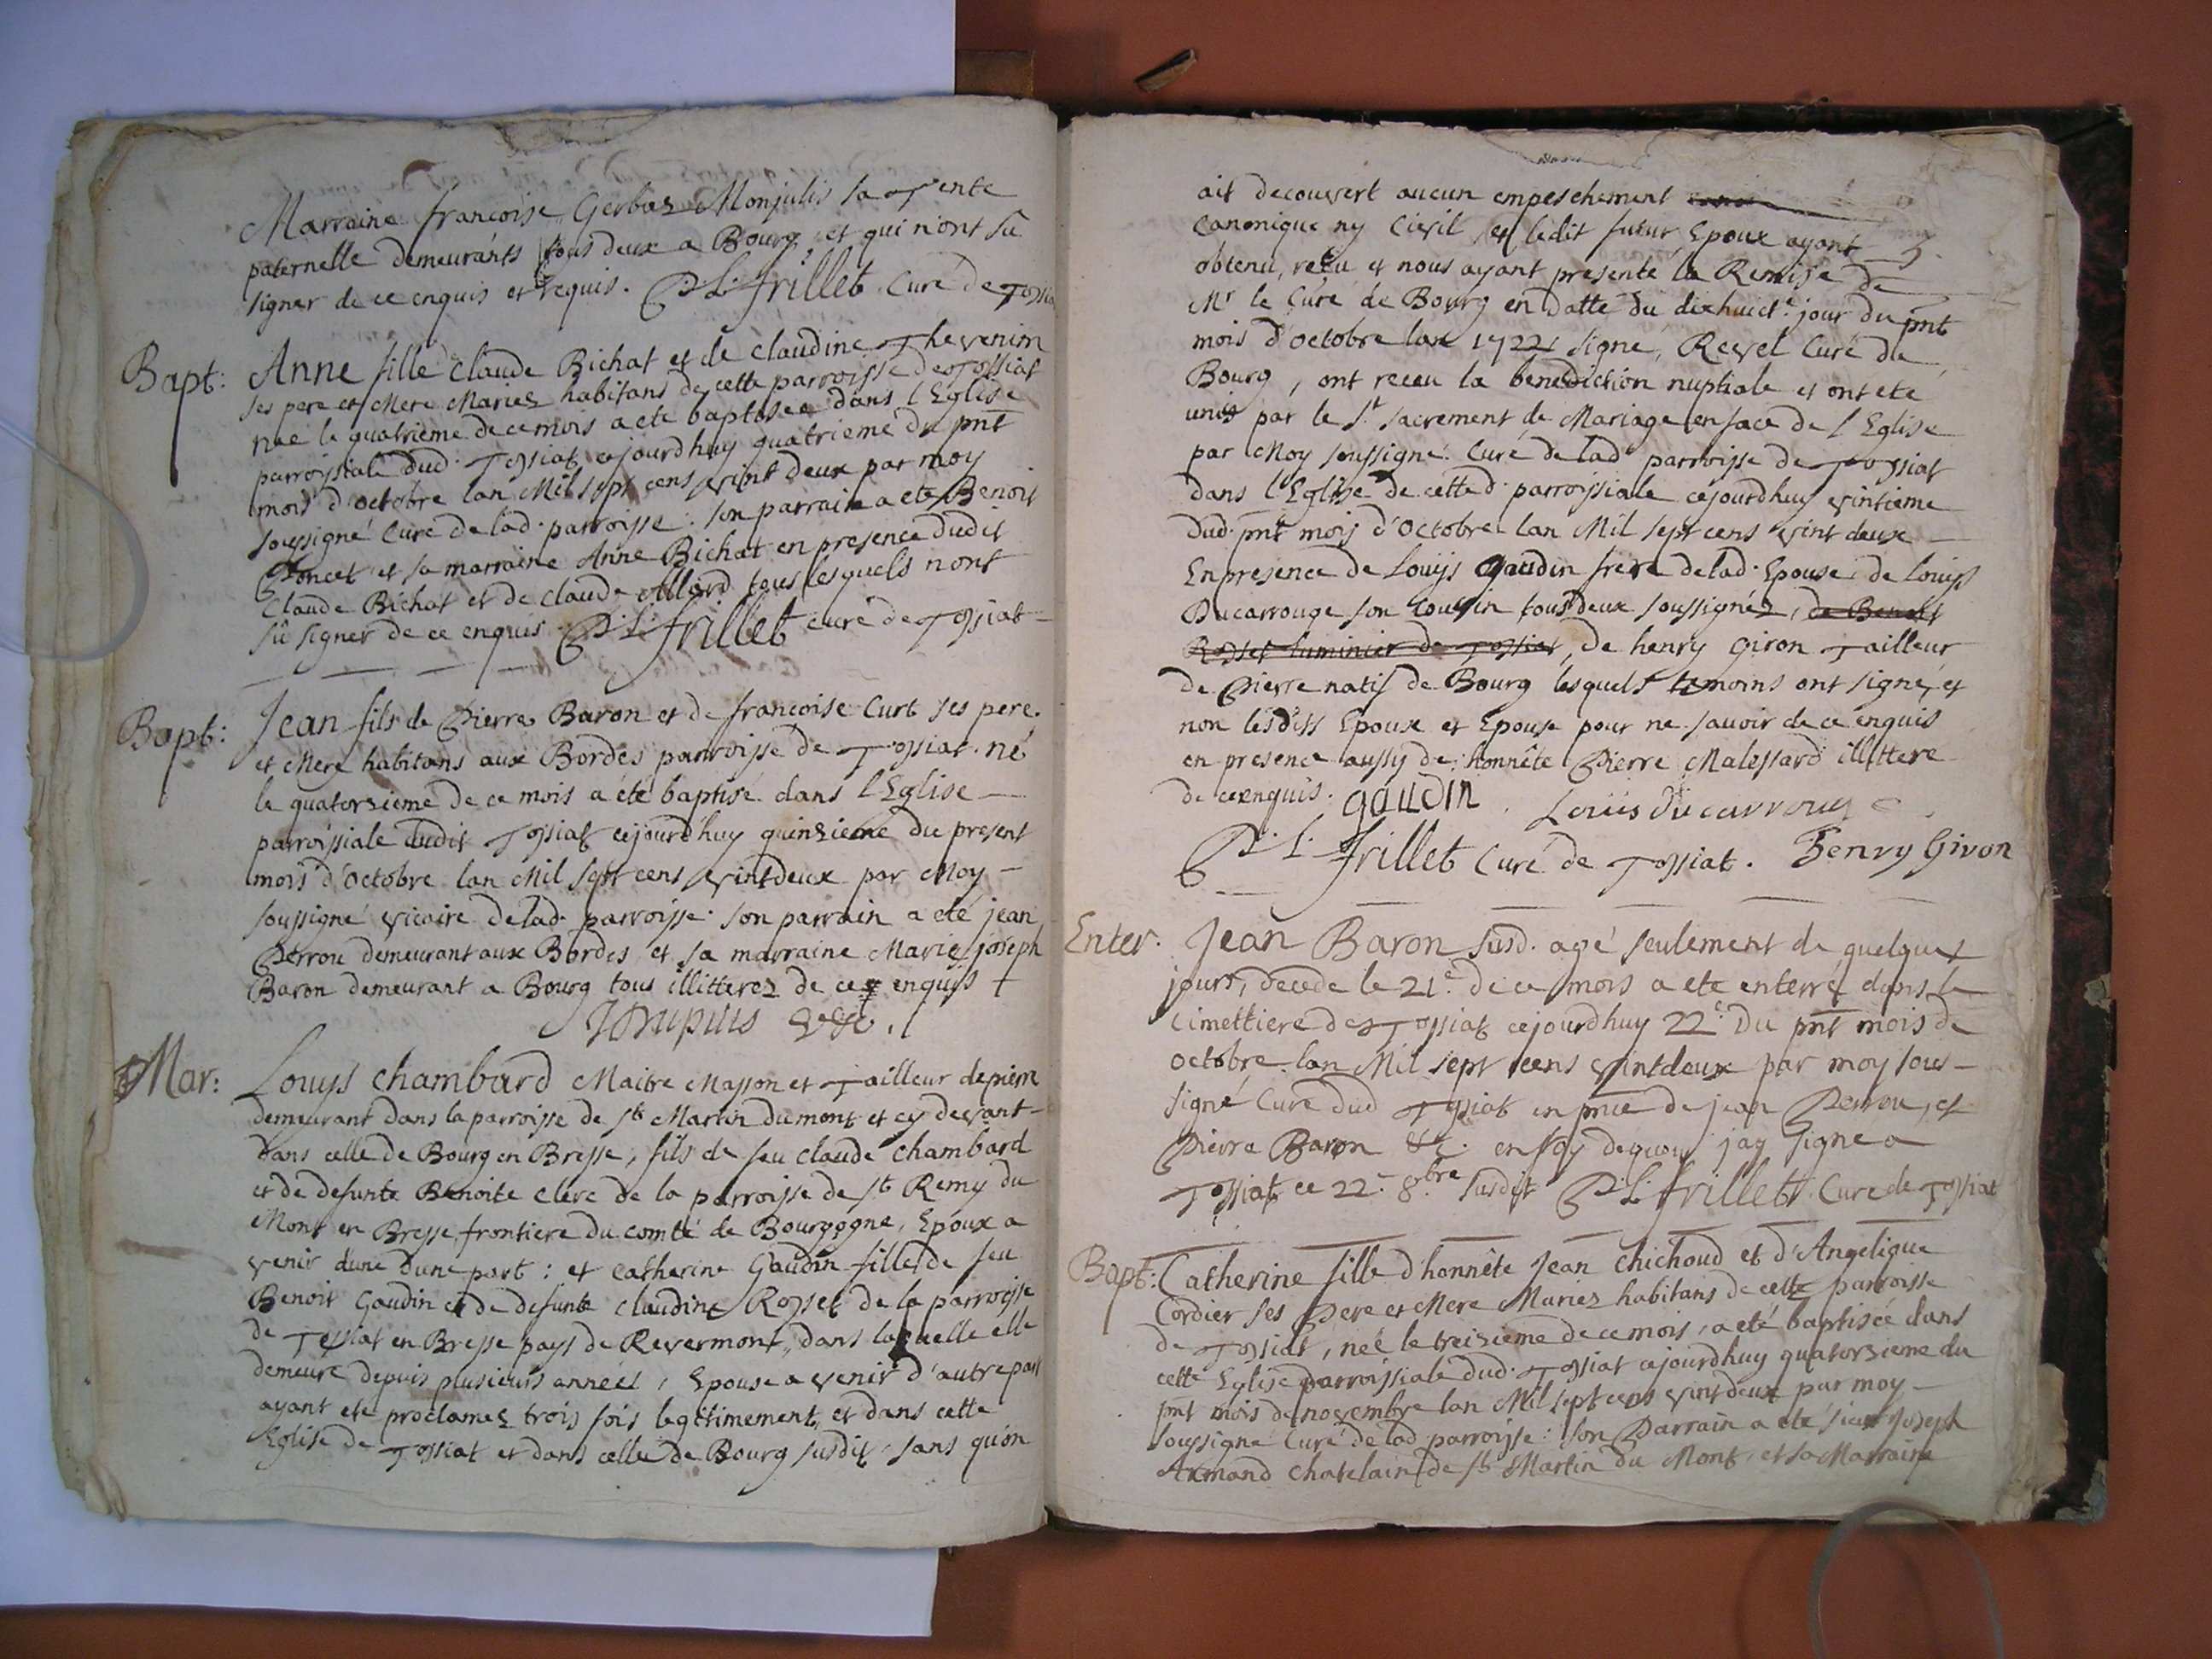 Marraine francoise Gerbaz Monjulis sa Tente
paternelle demeurants tous deux a Bourg et qui n'ont sû
signer de ce enquis et requis. P. L. frillet Curé de Tossia
Bapt: Anne fille Claude Bichat et de claudine Thevenin
ses pere et Mere Mariez habitans de cette parroisse de Tossiat
née le quatrieme de ce mois a ete baptisée dans l'Eglise
parroissiale dud. Tossiat cejourdhuy quatrieme du pnt
mois d'octobre lan Mil sept cens vint deux par moy
soussigné Curé de lad. parroisse. son parrain a ete Benoit
Poncet et sa marraine Anne Bichat en presence dudit
Claude Bichat et de claude Allard tous lesquels n'ont
sû signer de ce enquis P. L. frillet curé de Tossiat
Bapt: Jean fils de Pierre Baron et de francoise Curt ses pere
et Mere habitans aux Bordes parroisse de Tossiat né
le quatorzieme de ce mois a été baptisé dans l'Eglise
parroissiale dudit Tossiat cejourd'huy quinzieme du present
mois d'Octobre lan Mil sept cens vint deux par Moy
soussigné vicaire de lad. parroisse. son parrain a eté jean
Perrou demeurant aux Bordes et sa marraine Marie joseph
Baron demeurant a Bourg tous illitterez de ce enquis +
Dupuis
Mar: Louys Chambard Maitre Masson et Tailleur de pierre
demeurant dans la parroisse de St Martin du mont et cy devant
dans celle de Bourg en Bresse, fils de feu claude chambard
et de defunte Benoite Clerc de la parroisse de St Remy du
Mont en Bresse frontiere du comté de Bourgogne, Epoux a
venir d'une d'une part : et Catherine Gaudin fille de feu
Benoit Gaudin et de defunte claudine Rosset de la parroisse
de Tossiat en Bresse pays de Revermont, dans laquelle elle
demeure depuis plusieurs années, Epouse a venir d'autre part
ayant ete proclamez trois fois legitimement, et dans cette
Eglise de Tossiat et dans celle de Bourg susdit, sans qu'on
ait decouvert aucun empeschement
Canonique ny Civil, et ledit futur Epoux ayant
obtenu, recu et nous ayant presenté la Remise de
Mr le Curé de Bourg en datte du dixhuict.e jour du pnt
mois d'octobre lan 1722, signé, Revel Curé de
Bourg, ont receu la benediction nuptiale et ont eté
unis par le St. sacrement de Mariage en face de l'Eglise
par Moy soussigné. Curé de lad. parroisse de Tossiat
dans l'Eglise de cetted. parroissiale cejourdhuy vintieme
dud. pnt mois d'Octobre lan Mil sept cens vint deux
En presence de Louys Gaudin frere de lad. Epouse, de Louys
Ducarrouge son cousin tous deux soussignéz, de Benoit
Rosset luminier de Tossiat, de henry Giron Tailleur
de Pierre natif de Bourg lesquels temoins ont signé, et
non lesdits Epoux et Epouse pour ne savoir de ce enquis
en presence aussy de honnête Pierre Malessard illittere
de ce enquis. gaudin Louïs ducarrouge
P. L. frillet Curé de Tossiat. Henry Giron
Enter. Jean Baron susd. agé seulement de quelques
jours, decede le 21.e de ce mois a ete enterré dans le
Cimettiere de Tossiat cejourdhuy 22.e du pnt mois de
octobre lan Mil sept cens vintdeux par moy sous-
signé Curé dud Tossiat en pnce de jean Perrou, et
Pierre Baron &c. en foy dequoy jay signe a
Tossiat ce 22.e 8bre susdit P. L. frillet Curé de Tossiat
Bapt: Catherine fille d'honnête Jean Chichoud et d'Angelique
Cordier ses Pere et Mere Mariez habitans de cette parroisse
de Tossiat, neé le treizieme de ce mois, a eté baptisée dans
cette Eglise parroissiale dud. Tossiat cejourdhuy quatorzieme du
pnt mois de novembre lan Mil sept cens vint deux par moy
soussigné Curé de lad parroisse : son Parrain a été sieur Joseph
Armand Chatelain de St Martin du Mont, et sa Marraine